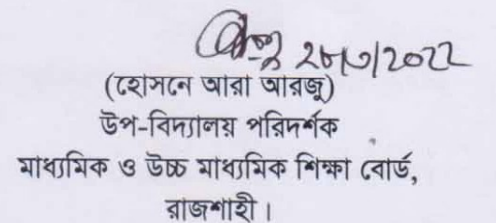 ২৮/৩/২০২২
(হোসনে আরা আরজু)
উপ-বিদ্যালয় পরিদর্শক
মাধ্যমিক ও উচ্চ মাধ্যমিক শিক্ষা বোর্ড,
রাজশাহী।